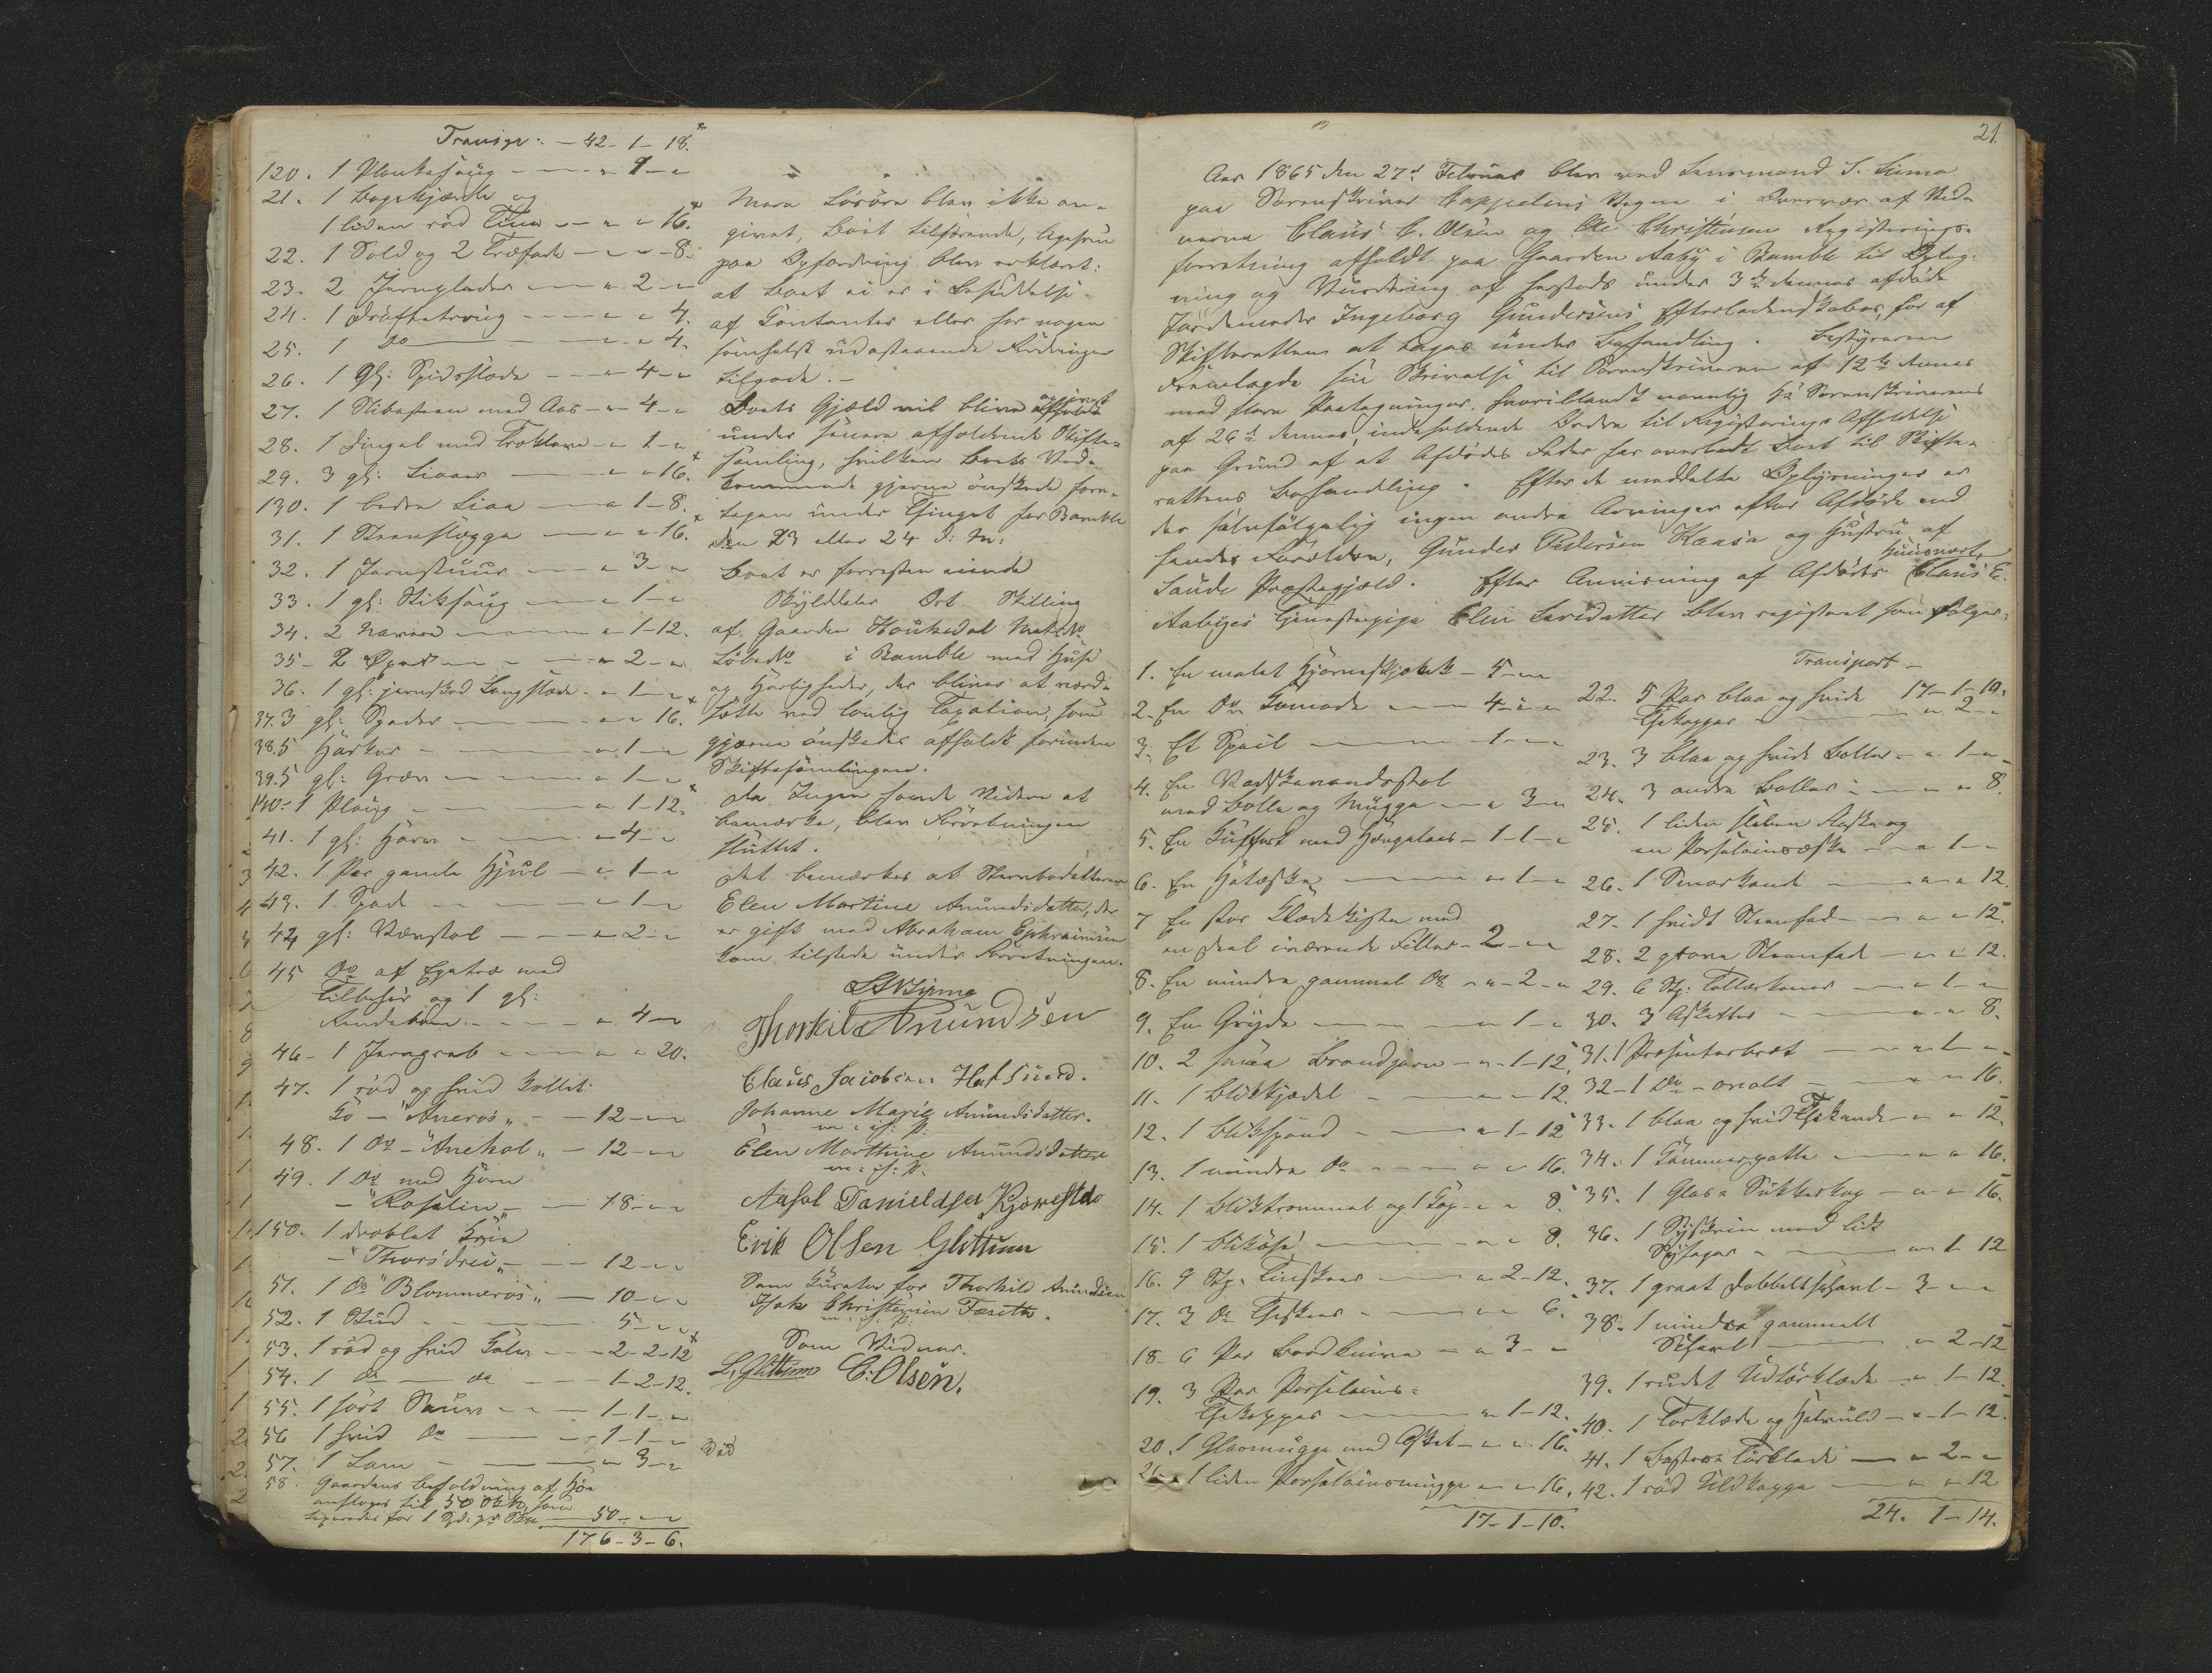 Transp: - 42 - 1 - 18.
120. 1 Plankesaug - - 1 -
21. 1 Bagekjævle og
1 liden rød Tine - - 16.
22. 1 Sold og 2 Træfade - - 8.
23. 2 Jernplader - - 2 -
24. 1 Drøftetroug - - 4.
25. 1 Do - - 4.
26. 1 gl: Spidsslæde - 4 -
27. 1 Slibesteen med Aas - 4 -
28. 1 Dingel med - 1 -
29. 3 gl: Liaaer - - 16.
130. 1 bedre Liaa - 1 - 8.
31. 1 Steenslægge - - 16.
32. 1 Jernstuur - 3 -
33. 1 gl: Stiksaug - 1 -
34. 2 Navere - 1 - 12.
35 - 2 Øxer - 2 -
36. 1 gl: jernskod Langslæde - 1 -
37. 3 gl: Spader - - 16.
38. 5 Harker - 1 -
39. 5 gl: Græv - 1 -
140 - 1 Ploug - 1 - 12.
41. 1 gl: Harv - 4 -
42. 1 Par gamle Hjul - 1 -
43. 1 Spade - 1 -
44 gl: Vævstol - 2 -
45 Do af Egetræ med
Tilbehør og 1 gl:
- 4 -
46 - 1 Jerngreb - - 20.
47. 1 rød og hvid kollet
Ko - "Aneros" - 12 -
48. 1 Do - "Anekol" - 12 -
49. 1 Do med Horn
- "Roselin" - 18 -
150. 1 droblet Kvie
- "Thorsdrei" - 12 -
51. 1 Do "Blommeros" - 10 -
52. 1 Stud - 5 -
53. 1 rød og hvid Kalv - 2 - 2 - 12
54. 1 Do - Do - 1 - 2 - 12.
55. 1 sort Sauv - 1 - 1 -
56 1 hvid Do - 1 - 1 -
57. 1 Lam - 3 -
58. Gaardens Beholdning af Høe
ansloges til 50 som
for 1 Spd: pr - 50 -
176 - 3 - 6.
Mere Løsøre blev ikke an-
givet, Boet tilhørende, ligesom
paa Opfordring blev erklæret:
at Boet ei er i Besiddelse
af Contanter eller har nogen
somhelst udestaaende Fordringer
tilgode. -
Boets Gjæld vil blive opgivet
under senere afholdende Skifte-
samling, hvilken Boets Ved-
kommende gjerne ønskede fore-
tagen under Thinget for Bamble
den 23 eller 24 d: M:
Boet er forresten eiende
Skylddaler Ort Skilling
af Gaarden Houkedal Matr. No
Løbe No i Bamble med Huse
og Herligheder, der bliver at værd-
sætte ved lovlig Taxation, som
gjerne ønskedes afholdt forinden
Skiftesamlingen.
Da Ingen havde Videre at
bemærke, blev Forretningen
sluttet.
Det bemærkes at Stervbodatteren
Elen Martine Amundsdatter, der
er gift med Abraham Ephraimsen
kom tilstede under Forretningen.
Thorkild Amundsen
Claus Jacobsen Hafsund.
Johanne Marie Amundsdatter.
m: if: P:
Elen Marthine Amundsdatter
m: if: P.
Aasol Danieldsen
Erik Olsen Glittum
Som Curator for Thorkild Amundsen
Isak Christensen Fæseth.
m: if: P:
Som Vidner.
L. Glittum C: Olsen.
Død
21.
Aar 1865 den 27de Februar blev ved Lensmand S. Siima
paa Sorenskriver Cappelens Vegne i Overvær af Vid-
nerne Claus C. Olsen og Ole Christensen Registrerings-
forretning afholdt paa Gaarden Aaby i Bamble til Opteg-
ning og Vurdering af hersteds under 3de dennes afdøde
Jordemoder Ingeborg Gundersens Efterladenskaber, for af
Skifteretten at tages under Behandling. Bestyreren
fremlagde sin Skrivelse til Sorenskriveren af 12te dennes
med flere Paategninger, hvoriblandt navnlig Hr Sorenskriverens
af 26de dennes, indeholdende Ordre til Registrerings Afholdelse
paa Grund af at Afdødes Fader har overladt Boet til Skifte-
rettens Behandling. Efter de meddelte Oplysninger er
der selvfølgelig ingen andre Arvinger efter Afdøde end
hendes Forældre, Gunder Pedersen Kaasa og Hustru af
Saude Præstegjæld. Efter Anvisning af Afdødes Huusvært Claus C.
Aabyes Tjenestepige Elen Larsdatter blev registreret som følger:
1. En malet Hjørneskjænk - 5 -
2. En Do Comode - 4 -
3. Et Speil - 1 -
4. En Vadskevandsstol
med Bolle og Mugge - 3 -
5. En Kuffert med Hængelaas - 1 - 1 -
6. En Hatæske - 1 -
7 En stor Klædekiste med
en Deel iværende Filler - 2 -
8. En mindre gammel Do - 2 -
9. En Gryde - 1 -
10. 2 smaa Brandjern - 1 - 12.
11. 1 Blikkjedel - - 12.
12. 1 Blikspand - 1 - 12
13. 1 mindre Do - - 16.
14. 1 Bliktrommel og 1 Kop - 8.
15. 1 Blikøse - 8.
16. 9 Stk. Tinskeer - 2 - 12.
17. 3 Do Theskeer - 6.
18 - 6 Par Bordknive - 3 -
19. 3 Par Porselains-
Thekopper - 1 - 12.
20. 1 Glasmugge med Asket - 16.
21. 1 liden Porselainsmugge - 16.
17 - 1 - 10.
Transport -
22. 5 Par blaa og hvide 17 - 1 - 10.
Thekopper - 2 -
23. 3 blaa og hvide Boller - 1 -
24. 3 andre Boller - 8.
25. 1 liden sleben Flaske og
en Porselainsæske - 1 -
26. 1 Smørkande - 12.
27. 1 hvidt Steenfad - 12.
28. 2 grove Steenfade - 12.
29. 6 Stk: Tallerkener - 1 -
30. 3 Asketter - 8.
31. 1 Præsenterbræt - 1 -
32 - 1 Do - ovalt - 16.
33. 1 blaa og hvid Thekande - 12.
34. 1 Kammerpotte - 16.
35. 1 Glas - Sukkerkop - 16.
36. 1 Syskrin med lidt
Sysager - 1 - 12
37. 1 graat Dobbeltschavl - 3 -
38. 1 mindre gammelt
Schavl - 2 - 12
39. 1 rudet Uldtørklæde - 1 - 12.
40. 1 Tørklæde og Halvuld - 1 - 12.
41. 1 Tørklæde - 2 -
42. 1 rød Uldkappe - 12
24. 1 - 14.